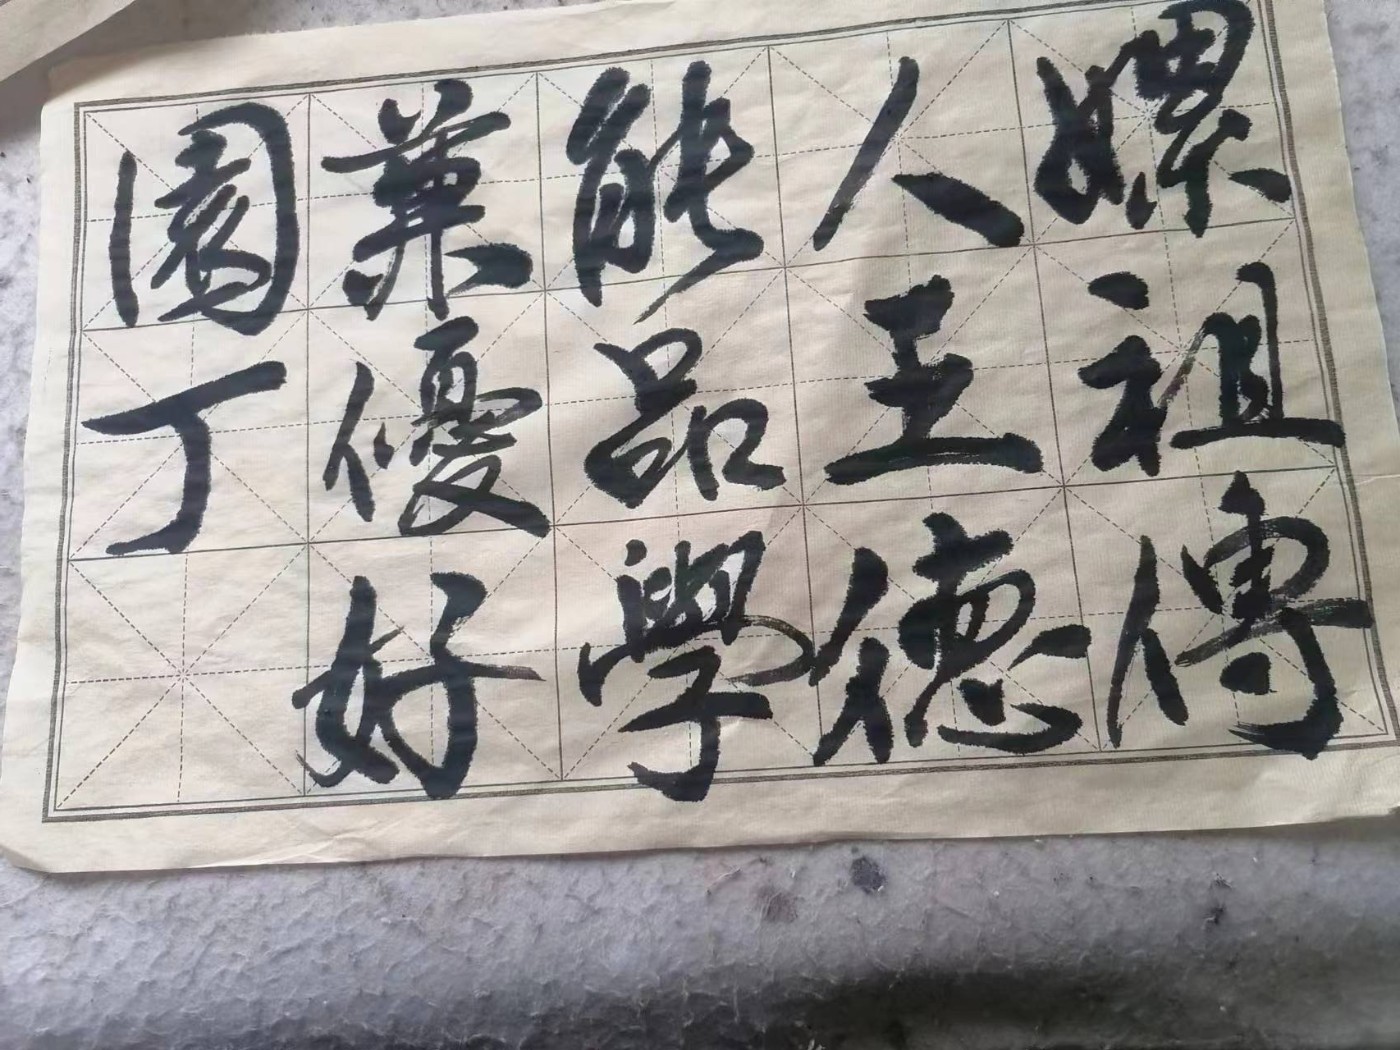 嫘祖傳
人王德
能品學
兼優好
園丁